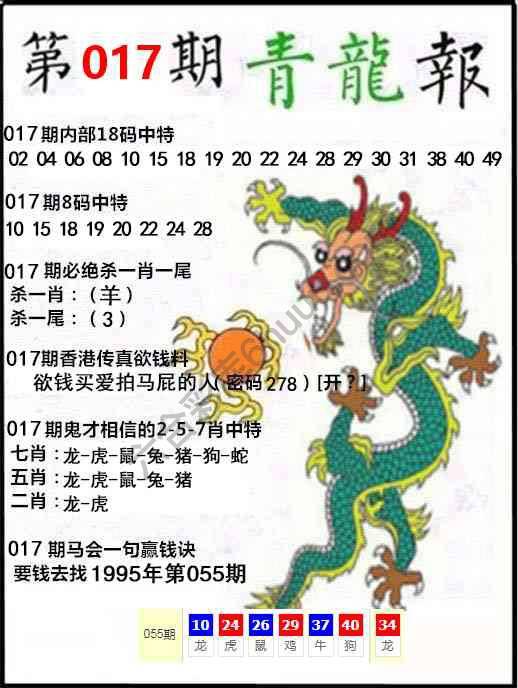 第017期青龍報
017期内部18码中特
02 04 06 08 10 15 18 19 20 22 24 28 29 30 31 38 40 49
017期8码中特
10 15 18 19 20 22 24 28
017期必绝杀一肖一尾
杀一肖：（羊）
杀一尾：（3）
017期香港传真欲钱料
欲钱买爱拍马屁的人(密码278)[开？]
017期鬼才相信的2-5-7肖中特
七肖：龙-虎-鼠-兔-猪-狗-蛇
五肖：龙-虎-鼠-兔-猪
二肖：龙-虎
017期马会一句赢钱诀
要钱去找1995年第055期
055期 10 24 26 29 37 40 34
龙 虎 鼠 鸡 牛 狗 龙